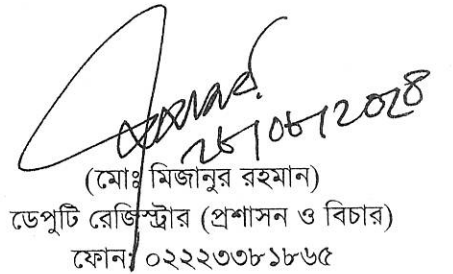 (মোঃ মিজানুর রহমান)
ডেপুটি রেজিস্ট্রার (প্রশাসন ও বিচার)
ফোন: ০২২২৩৩৮১৮৬৫